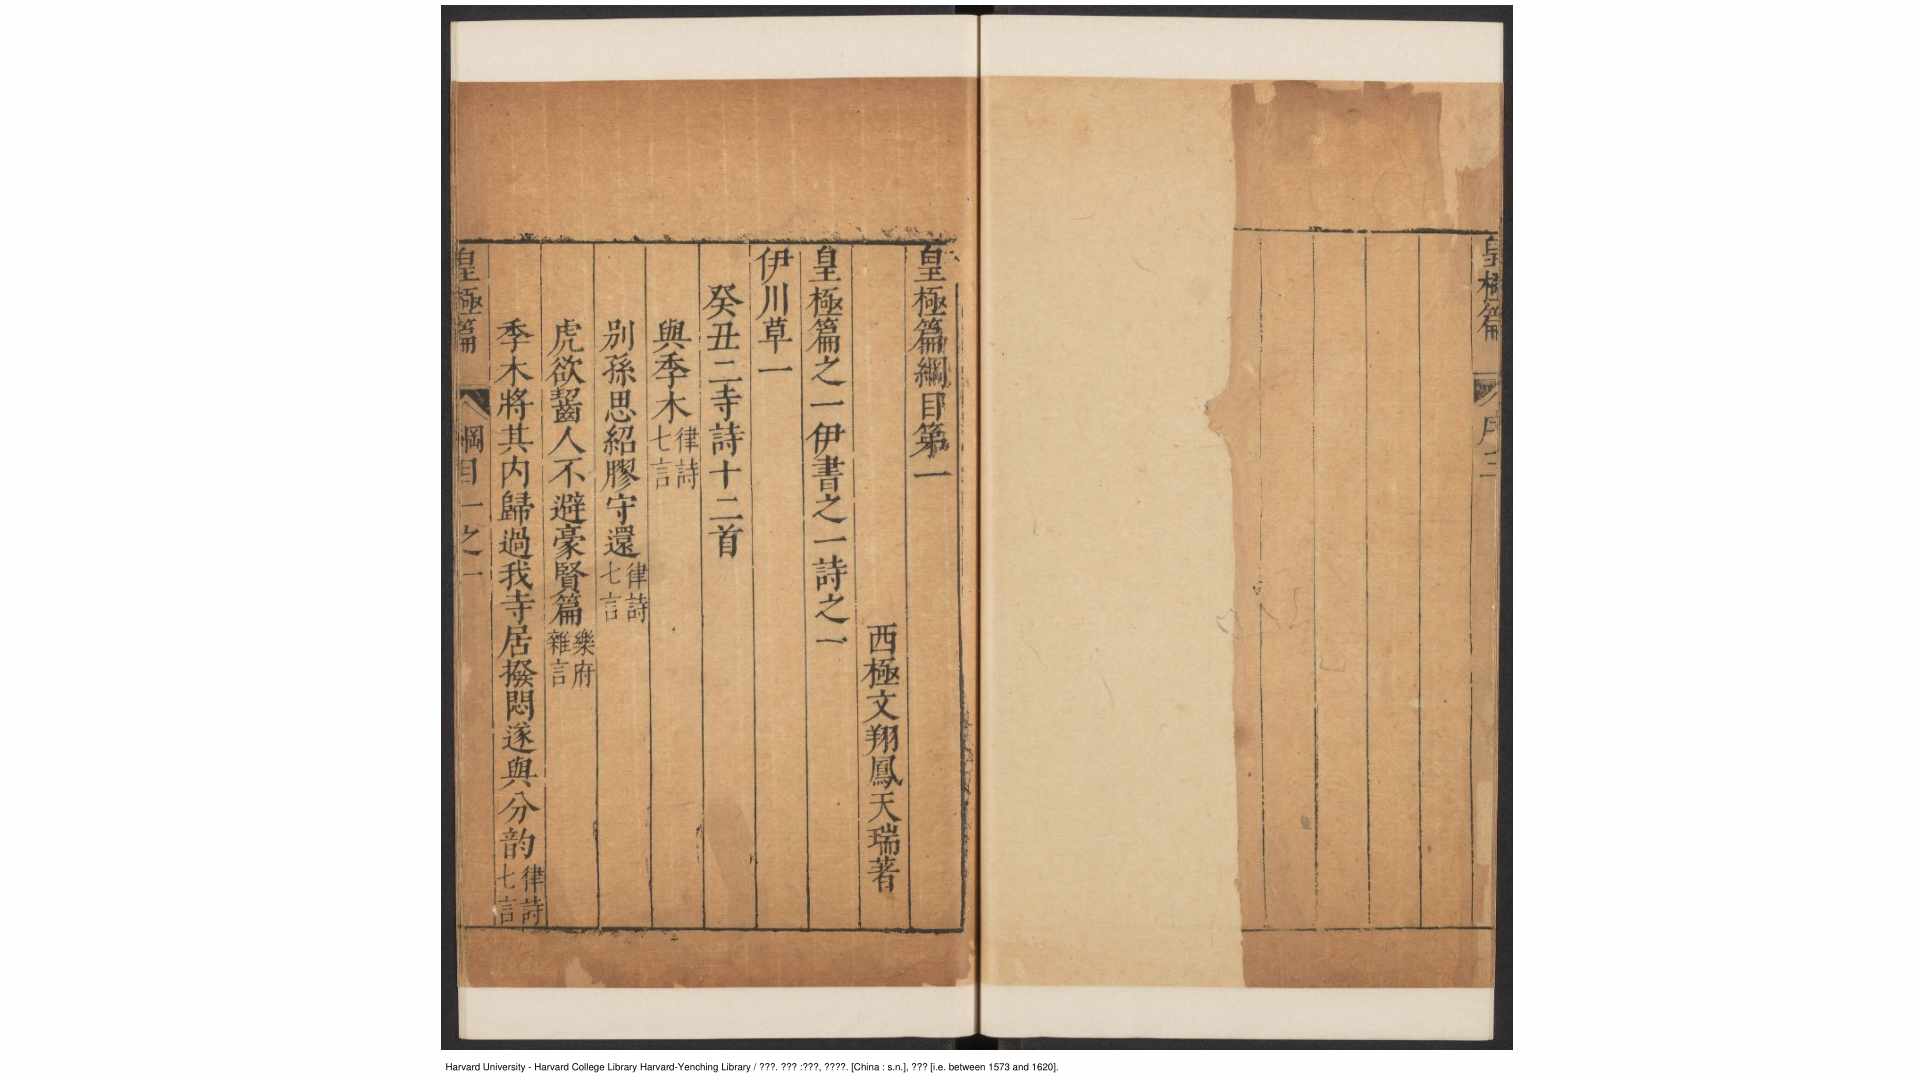 皇極篇
皇極篇綱目第一
西極文翔鳳天瑞著
皇極篇之一伊書之一詩之一
伊川草一
癸丑二寺詩十二首
與季木律詩七言
別孫思紹膠守還律詩七言
虎欲齧人不避豪賢篇樂府雜言
季木將其内歸過我寺居撥悶遂與分韵律詩七言
皇極篇 綱目一之一
Harvard University - Harvard College Library Harvard-Yenching Library / ???. ??? :???, ????. [China : s.n.], ??? [i.e. between 1573 and 1620].